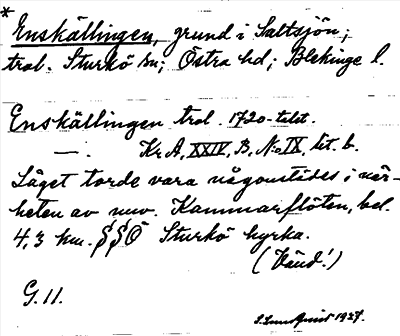 *
Enskällingen, grund i Saltsjön;
trol. Sturkö sn; Östra hd; Blekinge l.
Enskällingen trol. 1720-talet.
— . Kr. A, XXIV, B, No IX, lit. b.
Läget torde vara någonstädes i när-
heten av nuv. Kammarflöten, bel.
4,3 km. SSÖ Sturkö kyrka.
(Vänd!)
G. 11.
1927.